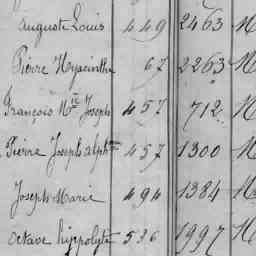 Auguste Louis 449 2463 N
Pierre Hyacinthe 67 2263 N
François Mie Joseph 457 712 N
Pierre Joseph Alphse 457 1300 N
Joseph Marie 494 1384 N
Octave hippolyte 536 1997 N